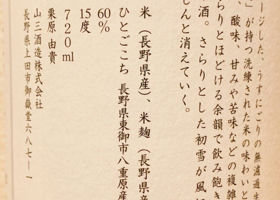 ージした、うすにごりの無濾過生
」が持つ洗練された米の味わいと
、酸味、甘みや苦味などの複雑
らりとほどける余韻で飲み飽き
酒。さらりとした初雪が風に
しんと消えていく。
米(長野県産)、米麹(長野県産
ひとごこち 長野県東御市八重原産
60%
15度
720ml
栗原由貴
山三酒造株式会社
長野県上田市御嶽堂687-1